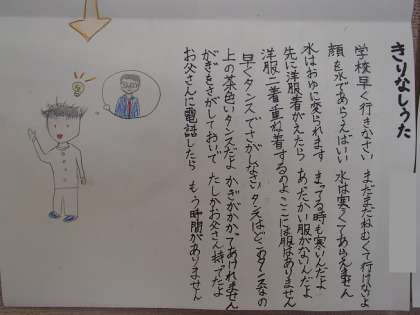 きりなしうた
学校早く行きなさい　まだまだねむくて行けないよ
顔を水であらえばいい　水は寒くてあらえません
水はおゆに変られます　まってる時も寒いんだよ
先に洋服着がえたら　あったかい服がないんだよ
洋服二着重ね着するのよ　ここには服はありません
早くタンスでさがしなさい　タンスはどこのタンスなの
上の茶色いタンスだよ　かぎがかかってあけれません
かぎをさがしておいで　たしかお父さん持ってたよ
お父さんに電話したら　もう時間がありません